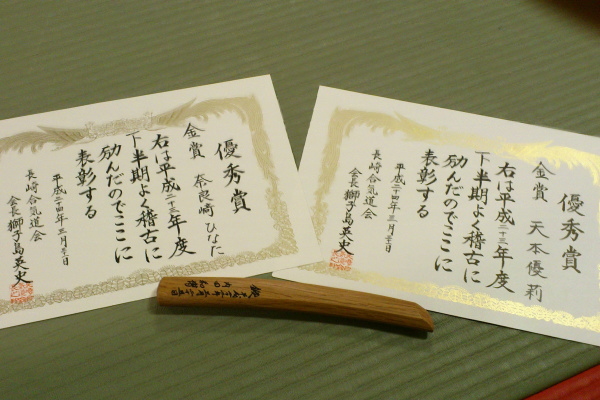 優秀賞
金賞 奈良崎 ひなた
右は平成二十三年度
下半期よく稽古に
励んだのでここに
表彰する
平成二十四年三月三十日
長崎合気道会
会長 獅子島英史
優秀賞
金賞 天本優莉
右は平成二十三年度
下半期よく稽古に
励んだのでここに
表彰する
平成二十四年三月三十日
長崎合気道会
会長 獅子島英史